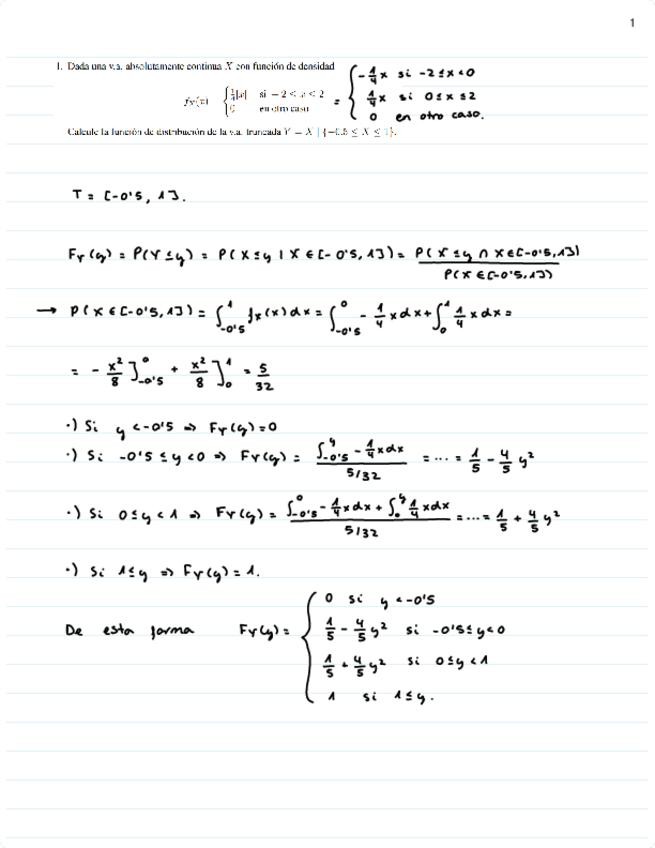 1
1. Dada una v.a. absolutamente continua X con función de densidad
f_X(x) = { 1/4|x| si −2 < x < 2 ; 0 en otro caso = { -1/4 x si -2≤x<0 ; 1/4 x si 0≤x≤2 ; 0 en otro caso.
Calcule la función de distribución de la v.a. truncada Y = X | {−0.5 ≤ X ≤ 1}.
T = [-0'5, 1].
F_Y(y) = P(Y≤y) = P(X≤y | X∈[-0'5, 1]) = P(X≤y ∩ X∈[-0'5,1]) / P(X∈[-0'5,1])
→ P(X∈[-0'5,1]) = ∫_{-0'5}^{1} f_X(x)dx = ∫_{-0'5}^{0} -1/4 x dx + ∫_{0}^{1} 1/4 x dx =
= - x²/8 ]_{-0'5}^{0} + x²/8 ]_{0}^{1} = 5/32
·) Si y <-0'5 ⇒ F_Y(y)=0
·) Si -0'5 ≤ y<0 ⇒ F_Y(y) = ∫_{-0'5}^{y} -1/4 x dx / 5/32 = ... = 1/5 - 4/5 y²
·) Si 0≤y<1 ⇒ F_Y(y) = ∫_{-0'5}^{0} -1/4 x dx + ∫_{0}^{y} 1/4 x dx / 5/32 = ... = 1/5 + 4/5 y²
·) Si 1≤y ⇒ F_Y(y) = 1.
De esta forma F_Y(y) = { 0 si y <-0'5
1/5 - 4/5 y² si -0'5≤y<0
1/5 + 4/5 y² si 0≤y<1
1 si 1≤y.